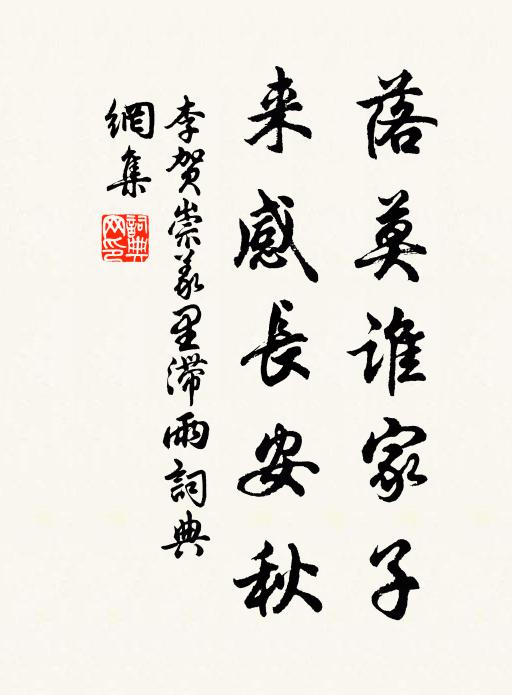 落莫谁家子
来感長安秋
李贺崇义里滞雨詞典
網集
詞典网印